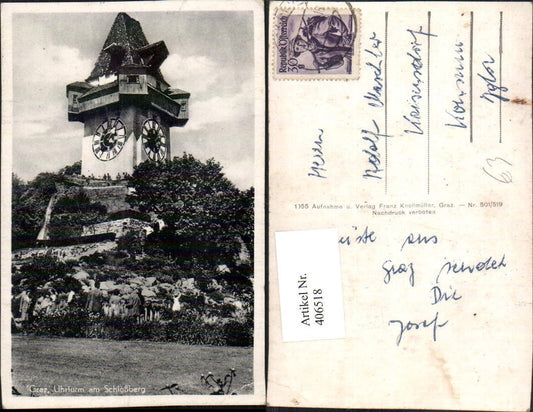 Graz, Uhrturm am Schloßberg
Republik Österreich
30
Herrn
Rudolf
Kaisersdorf
63
1155 Aufnahme u. Verlag Franz Knollmüller, Graz. — Nr. 501/519
Nachdruck verboten
aus
Graz sendet
Dir
Josef
Artikel Nr.
406518